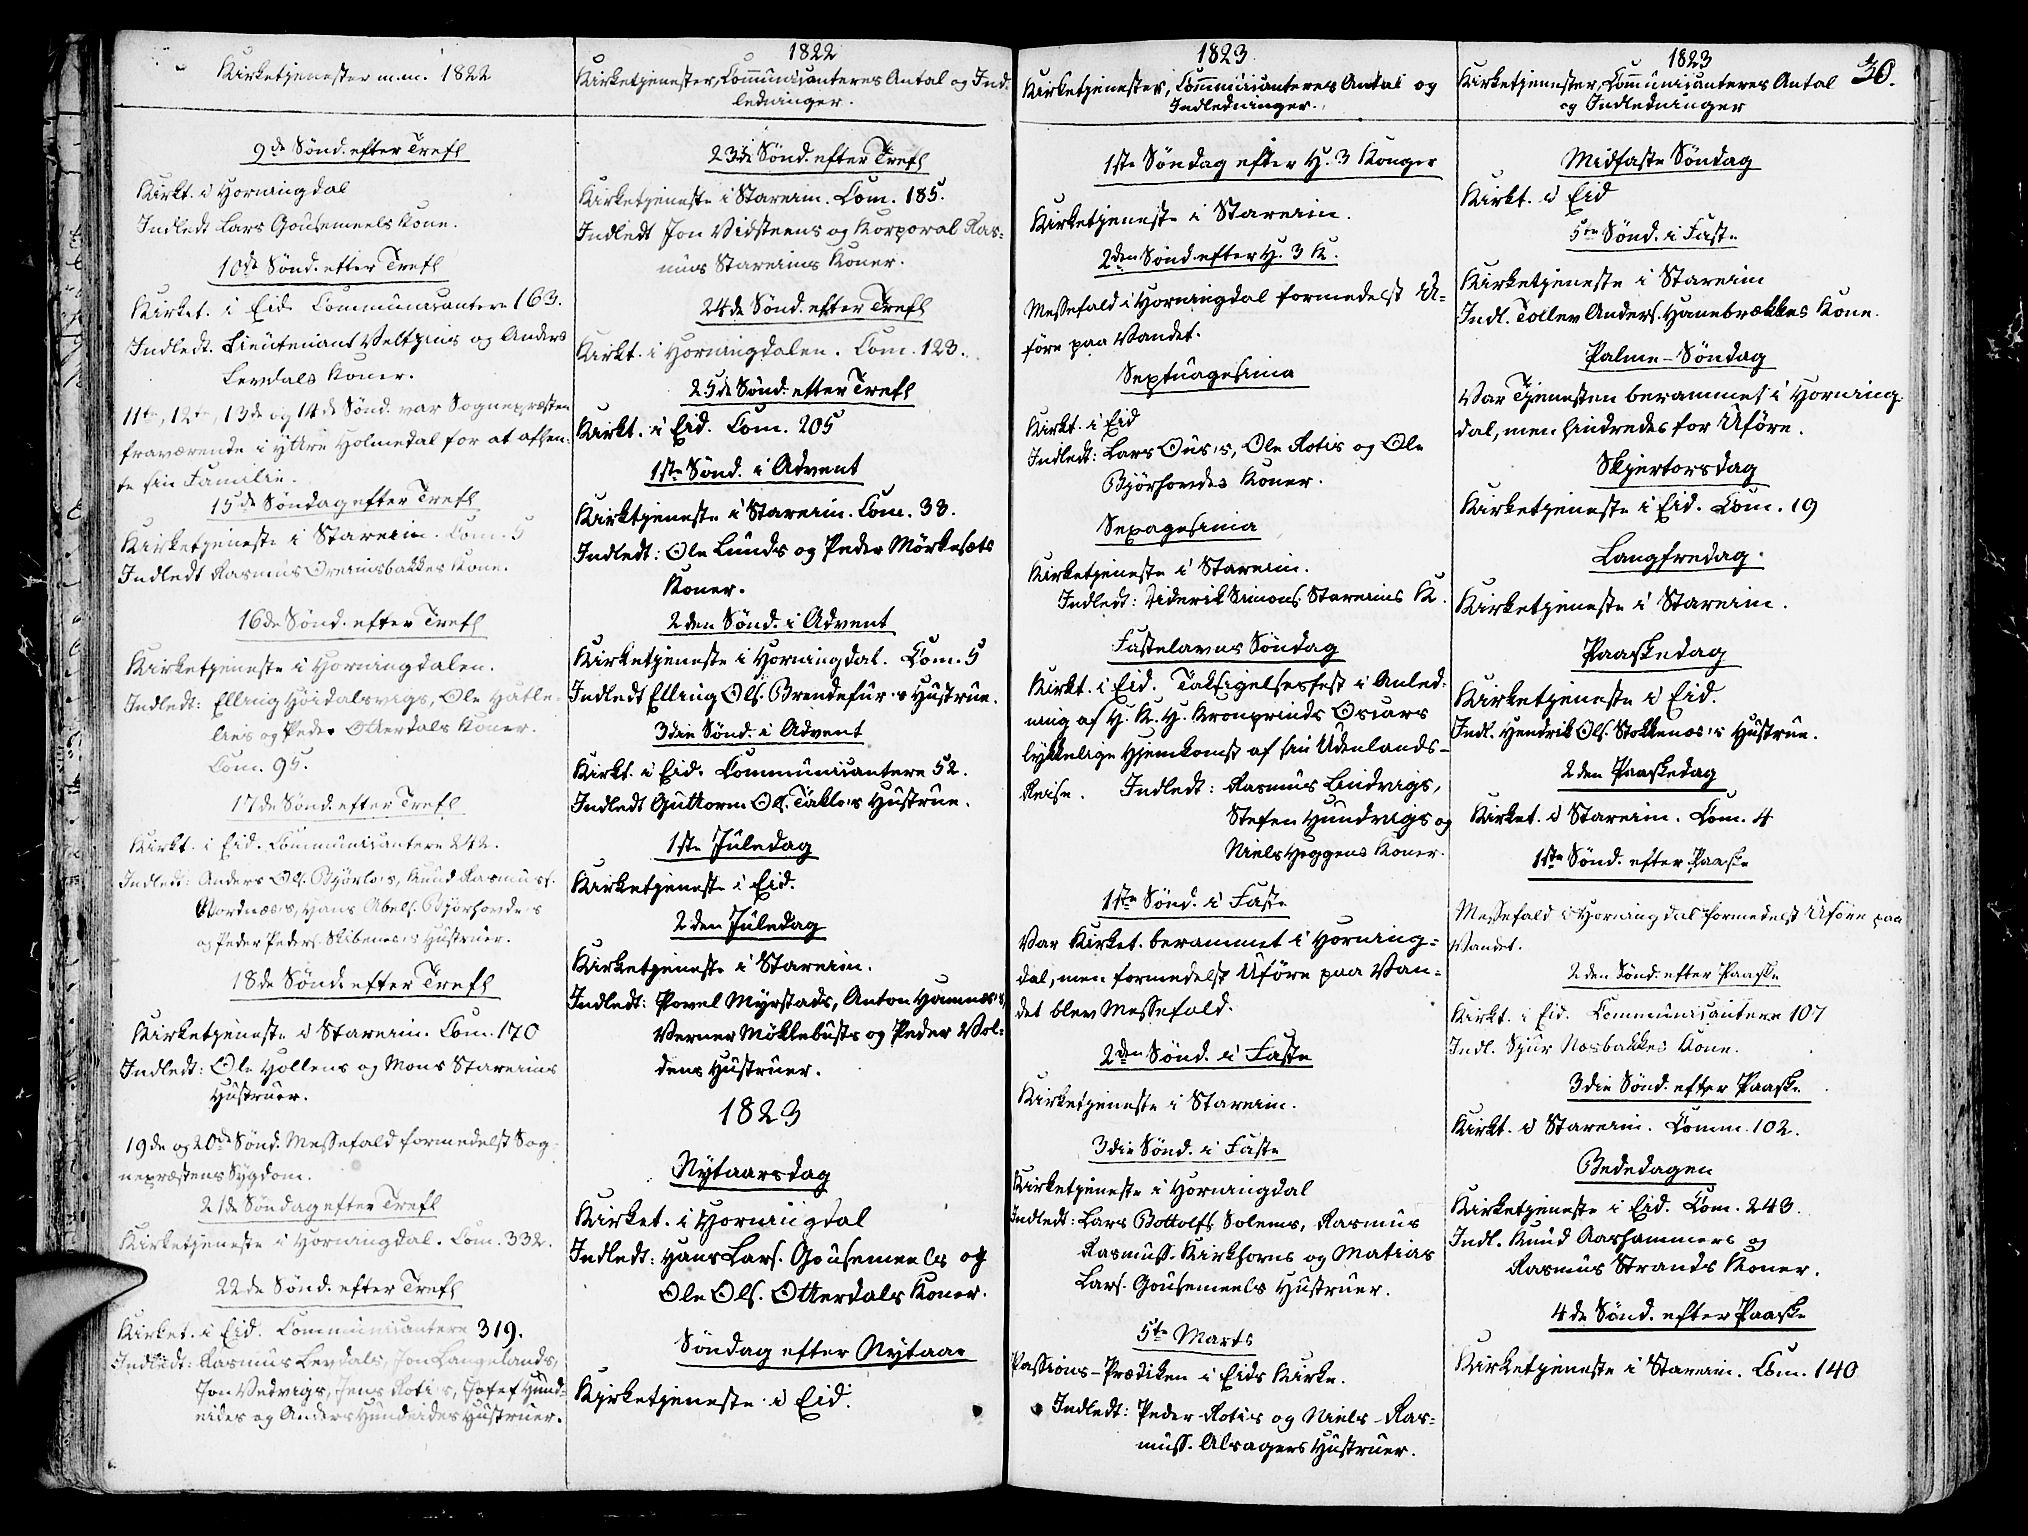 Kirketjenester m.m. 1822
9de Sønd. efter Tref.
Kirkt. i Horningdal
Indledt Lars Gousemeels Kone.
10de Sønd. efter Tref.
Kirket. i Eid. Communicantere 163.
Indledt. Lieutenant Veltzins og Anders
Levdals Koner.
11te, 12te, 13de og 14de Sønd. var Sognepræsten
fraværende i ytre Holmedal for at afhen-
te sin Familie.
15de Søndag efter Tref.
Kirketjeneste i Stareim. Com. 5
Indledt Rasmus Øreimsbakkes Kone.
16de Sønd. efter Tref.
Kirketjeneste i Horningdalen.
Indledt: Elling Høidalsvigs, Ole Hatle-
lies og Peder Otterdals Koner.
Com. 95.
17de Sønd. efter Tref.
Kirkt. i Eid. Communicantere 242.
Indledt: Anders Ols. Bjørlo's, Knud Rasmuss.
Nordnæs's, Hans Abels. Bjørhovde's
og Peder Peders. Skibenes's Hustruer.
18de Sønd. efter Tref.
Kirketjeneste i Stareim. Com. 170
Indledt: Ole Hjollens og Mons Stareims
Hustruer.
19de og 20de Sønd. Messefald formedelst Sog-
nepræstens Sygdom.
21de Søndag efter Tref.
Kirketjeneste i Horningdal. Com. 332.
22de Sønd. efter Tref.
Kirket. i Eid. Communicantere 319.
Indledt: Rasmus Levdals, Jon Langelands,
Jon Vedvigs, Jens Roti's, Josef Hund-
eides og Anders Hundeides Hustruer.
1822
Kirketjenester, Communicanteres Antal og Ind-
ledninger.
23de Sønd. efter Tref.
Kirketjeneste i Stareim. Com. 185.
Indledt Jon Vidsteens og Korporal Ras-
mus Stareims Koner.
24de Sønd. efter Tref.
Kirkt. i Horningdalen. Com. 123.
25de Sønd. efter Tref.
Kirkt. i Eid. Com. 205
1ste Sønd. i Advent
Kirktjeneste i Stareim. Com. 33.
Indledt: Ole Lunds og Peder Mørkesæts
Koner.
2den Sønd. i Advent
Kirketjeneste i Horningdal. Com. 5
Indledt Elling Ols. Brendefur's Hustrue.
3die Sønd. i Advent
Kirkt. i Eid. Communicantere 52.
Indledt Guttorm Ols. Takle's Hustrue.
1ste Juledag
Kirketjeneste i Eid.
2den Juledag
Kirketjeneste i Stareim.
Indledt: Povel Myrstads, Anton Hamnes's,
Verner Møklebusts og Peder Vol-
dens Hustruer.
1823
Nytaarsdag
Kirket. i Horningdal
Indledt: Hans Lars. Gousemeels og
Ole Ols. Otterdals Koner.
Søndag efter Nytaar
Kirketjeneste i Eid.
1823
Kirketjenester, Communicanteres Antal og
Indledninger.
1ste Søndag efter H. 3 Konger
Kirketjeneste i Stareim.
2den Sønd. efter H. 3 K.
Messefald i Horningdal formedelst U-
føre paa Vandet.
Septuagesima
Kirkt. i Eid
Indledt: Lars Ous's, Ole Rotis og Ole
Bjørhovdes Koner.
Sexagesima
Kirketjeneste i Stareim.
Indledt: Diderik Simons. Stareims K.
Fastelavns Søndag
Kirkt. i Eid. Taksigelsesfest i Anled-
ning af H. K. H. Kronprinds Oscars
lykkelige Hjemkomst af sin Udenlands-
Reise. Indledt: Rasmus Lindvigs,
Stefen Hundvigs og
Niels Heggens Koner.
1ste Sønd. i Faste
Var Kirket. berammet i Horning-
dal, men formedelst Uføre paa Van-
det blev Messefald.
2den Sønd. i Faste
Kirketjeneste i Stareim.
3die Sønd. i Faste
Kirketjeneste i Horningdal
Indledt: Lars Bottolfs. Solems, Rasmus
Rasmuss. Kirkhorns og Matias
Lars. Gousemeels Hustruer.
5te Marts
Passions-Prædiken i Eids Kirke.
Indledt: Peder Rotis og Niels Ras-
muss. Alsagers Hustruer.
1823
30.
Kirketjenester, Communicanteres Antal
og Indledninger
Midfaste Søndag
Kirkt. i Eid
5te Sønd. i Faste
Kirketjeneste i Stareim
Indl. Tollev Anders. Hanebrækkes Kone.
Palme-Søndag
Var Tjenesten berammet i Horning-
dal, men hindredes for Uføre.
Skjertorsdag
Kirketjeneste i Eid. Com. 19
Langfredag.
Kirketjeneste i Stareim.
Paaskedag
Kirketjeneste i Eid.
Indl. Hendrik Ols. Stokkenes's Hustrue.
2den Paaskedag
Kirket. i Stareim. Com. 4
1ste Sønd. efter Paaske
Messefald i Horningdal formedelst Uføre paa
Vandet.
2den Sønd. efter Paaske
Kirkt. i Eid. Communicantere 107
Indl. Sjur Nosbakkes Kone.
3die Sønd. efter Paaske
Kirkt. i Stareim. Comm. 102.
Bededagen
Kirketjeneste i Eid. Com. 243.
Indl. Knud Aarhammers og
Rasmus Strands Koner.
4de Sønd. efter Paaske
Kirketjeneste i Stareim. Com. 140